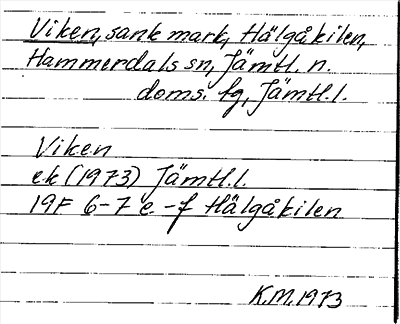 Viken, sank mark, Hälgåkilen,
Hammerdals sn, Jämtl. n.
doms. fg, Jämtl. l.
Viken
ek (1973) Jämtl. l.
19F 6-7 e.-f Hälgåkilen
K.M. 1973